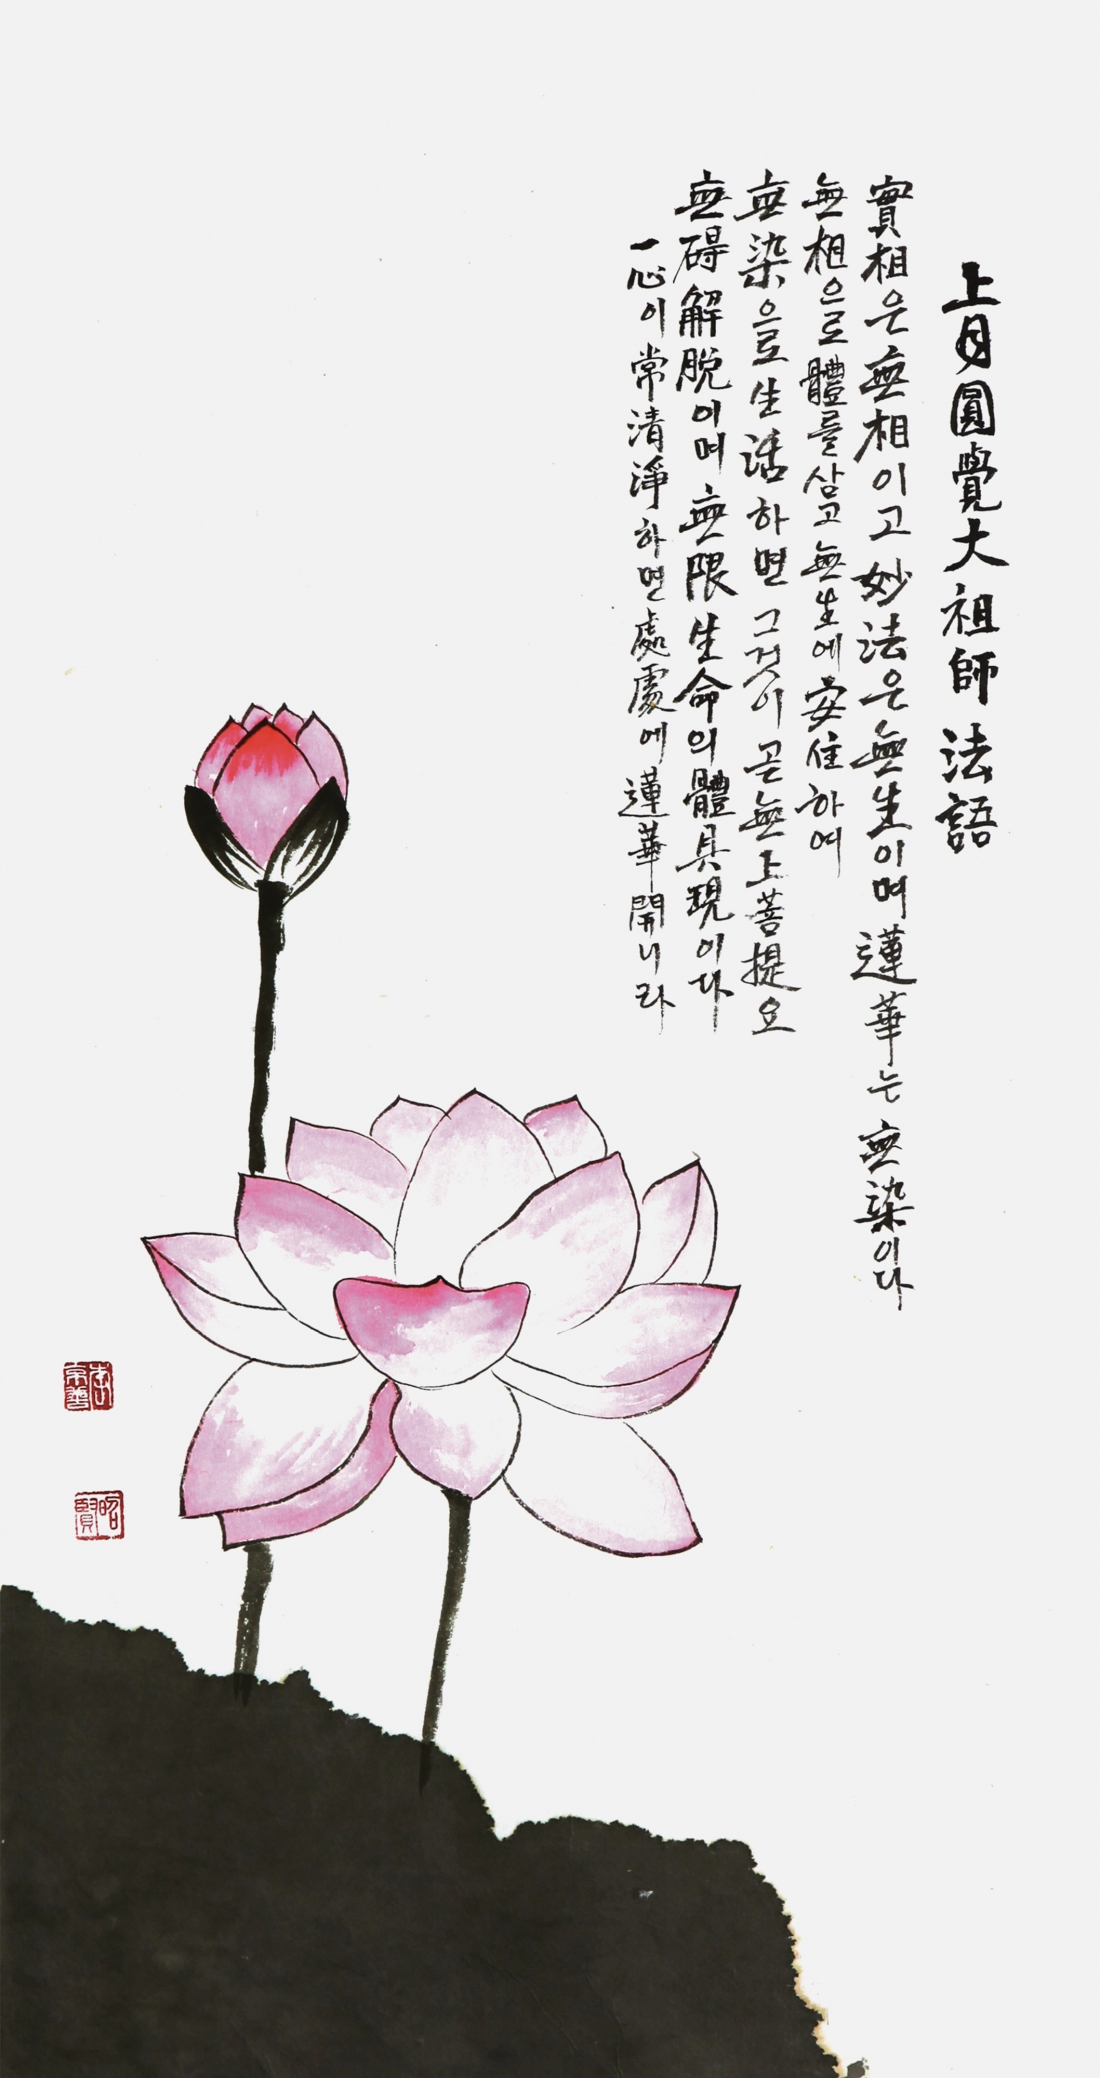 上月圓覺大祖師法語
實相은無相이고妙法은無生이며蓮華는無染이다
無相으로體를삼고無生에安住하여
無染으로生活하면그것이곧無上菩提요
無碍解脫이며無限生命의體具現이다
一心이常清淨하면處處에蓮華開니라
昭賢